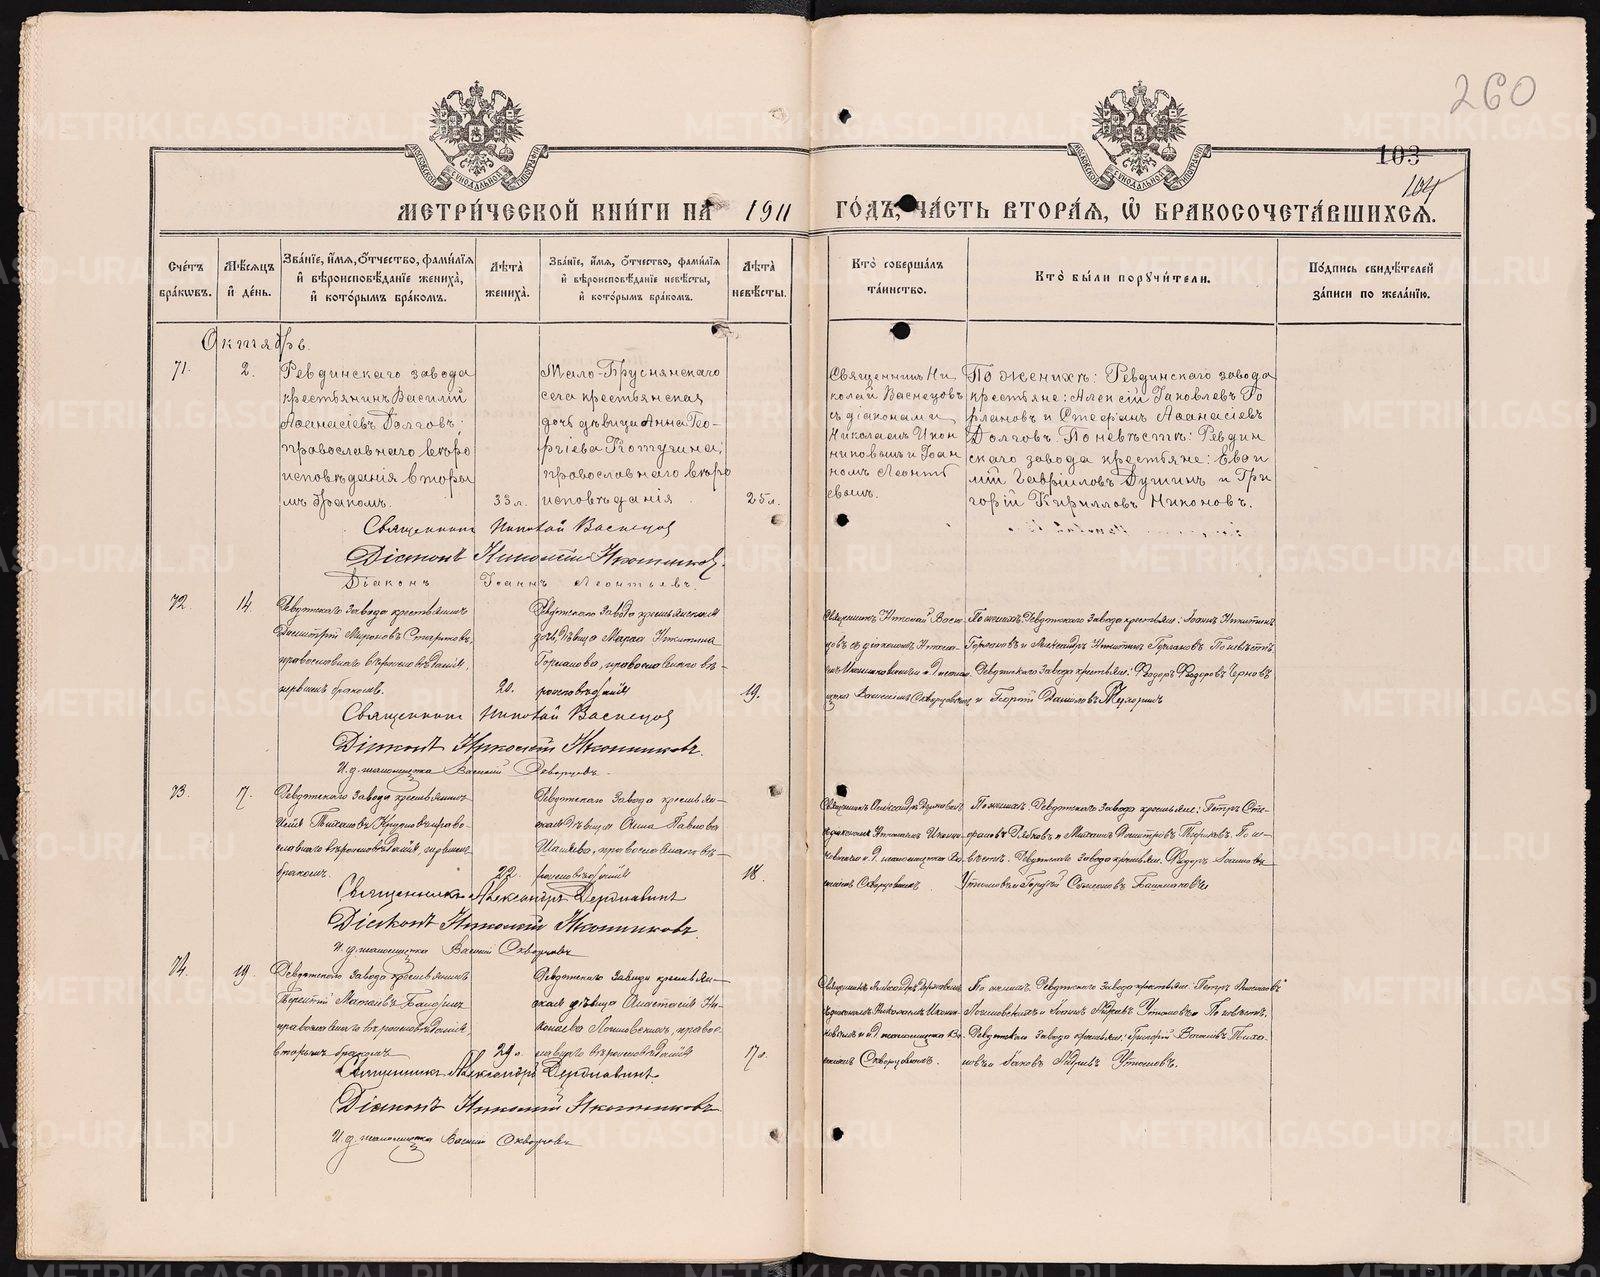 260
103
104
МЕТРИ́ЧЕСКОЙ КНИ́ГИ НА̀ 1911 ГО́ДЪ, ЧА́СТЬ ВТОРА́Я, Ѿ БРАКОСОЧЕТА́ВШИХСЯ.
Сче́тъ бра́кωвъ.
Мѣ́сяцъ и҆ де́нь.
Зва́нїе, и҆́мя, ѻ҆́тчество, фами́лїя и҆ вѣроисповѣ́данїе жениха̀, и҆ кото́рымъ бра́комъ.
Лѣ́та жениха̀.
Зва́нїе, и҆́мя, ѻ҆́тчество, фами́лїя и҆ вѣроисповѣ́данїе невѣ́сты, и҆ кото́рымъ бра́комъ.
Лѣ́та невѣ́сты.
Кто̀ соверша́лъ та́инство.
Кто̀ бы́ли порꙋчи́тели.
По́дпись свидѣ́телей за́писи по жела́нїю.
Октябрь.
71. 2.
Ревдинскаго завода
крестьянинъ Василій
Аѳанасіевъ Долговъ;
православнаго вѣро
исповѣданія вторы
мъ бракомъ.
33 л.
Мало-Бруснянскаго
села крестьянская
дочь дѣвица Анна Гео-
ргіева Котугина;
православнаго вѣро
исповѣданія
25 л.
Священникъ Ни
колай Васнецовъ
съ діаконами
Николаемъ Икон
никовымъ и Іоан
номъ Леонтi
евымъ.
По женихѣ: Ревдинскаго завода
крестьяне: Алексій Іаковлевъ Го
рлановъ и Стефанъ Аѳанасіевъ
Долговъ. По невѣстѣ: Ревдин
скаго завода крестьяне: Евѳи
мій Гавріиловъ Душинъ и Гри
горій Кирилловъ Никоновъ.
Священникъ Николай Васнецовъ
Діаконъ Николай Иконниковъ.
Діаконъ Іоаннъ Леонтьевъ.
72. 14.
Ревдинскаго завода крестьянинъ
Димитрій Мироновъ Стариковъ,
православнаго вѣроисповѣданія,
первымъ бракомъ.
20.
Ревдинскаго завода крестьянская
дочь, дѣвица Марѳа Никитина
Горланова, православнаго вѣ-
роисповѣданія
19.
Священникъ Николай Васне
цовъ съ діакономъ Никола-
емъ Иконниковымъ и и. д. псалом
щика Василіемъ Скворцовымъ
По женихѣ: Ревдинскаго завода крестьяне: Іоаннъ Никитинъ
Горлановъ и Александръ Никитинъ Горлановъ. По невѣстѣ:
Ревдинскаго завода крестьяне: Ѳедоръ Ѳедоровъ Черновъ
и Георгій Даніиловъ
Священникъ Николай Васнецовъ
Діаконъ Николай Иконниковъ.
И. д. псаломщика Василій Скворцовъ.
73. 17.
Ревдинскаго завода крестьянинъ
Тихановъ право-
славнаго вѣроисповѣданія, первымъ
бракомъ.
22.
Ревдинскаго завода крестьян-
ская дѣвица Анна Павлова
православнаго вѣ-
роисповѣданія
18.
Священникъ Александръ Державинъ
съ діакономъ Николаемъ Иконни-
ковымъ и и. д. псаломщика Ва-
силіемъ Скворцовымъ.
По женихѣ: Ревдинскаго завода крестьяне: Петръ Сте-
фановъ и Михаилъ Димитріевъ По не-
вѣстѣ: Ревдинскаго завода крестьяне: Ѳедоръ Іоанновъ
Утюмовъ и Георгій Симеоновъ Башмаковъ
Священникъ Александръ Державинъ
Діаконъ Николай Иконниковъ.
И. д. псаломщика Василій Скворцовъ
74. 19.
Ревдинскаго завода крестьянинъ
Терентій Матѳіевъ
православнаго вѣроисповѣданія
вторымъ бракомъ
29.
Ревдинскаго завода крестьян-
ская дѣвица Анастасія
Логиновскихъ, право-
славнаго вѣроисповѣданія
17.
Священникъ Александръ Державинъ
съ діакономъ Николаемъ Иконни-
ковымъ и и. д. псаломщика Ва-
силіемъ Скворцовымъ.
По женихѣ: Ревдинскаго завода крестьяне: Петръ
Логиновскихъ и Іоаннъ Утюмовъ. По невѣстѣ:
Ревдинскаго завода крестьяне: Григорій Васильевъ Тиха-
новъ и Іаковъ Утюмовъ.
Священникъ Александръ Державинъ.
Діаконъ Николай Иконниковъ
И. д. псаломщика Василій Скворцовъ
METRIKI.GASO-URAL.RU